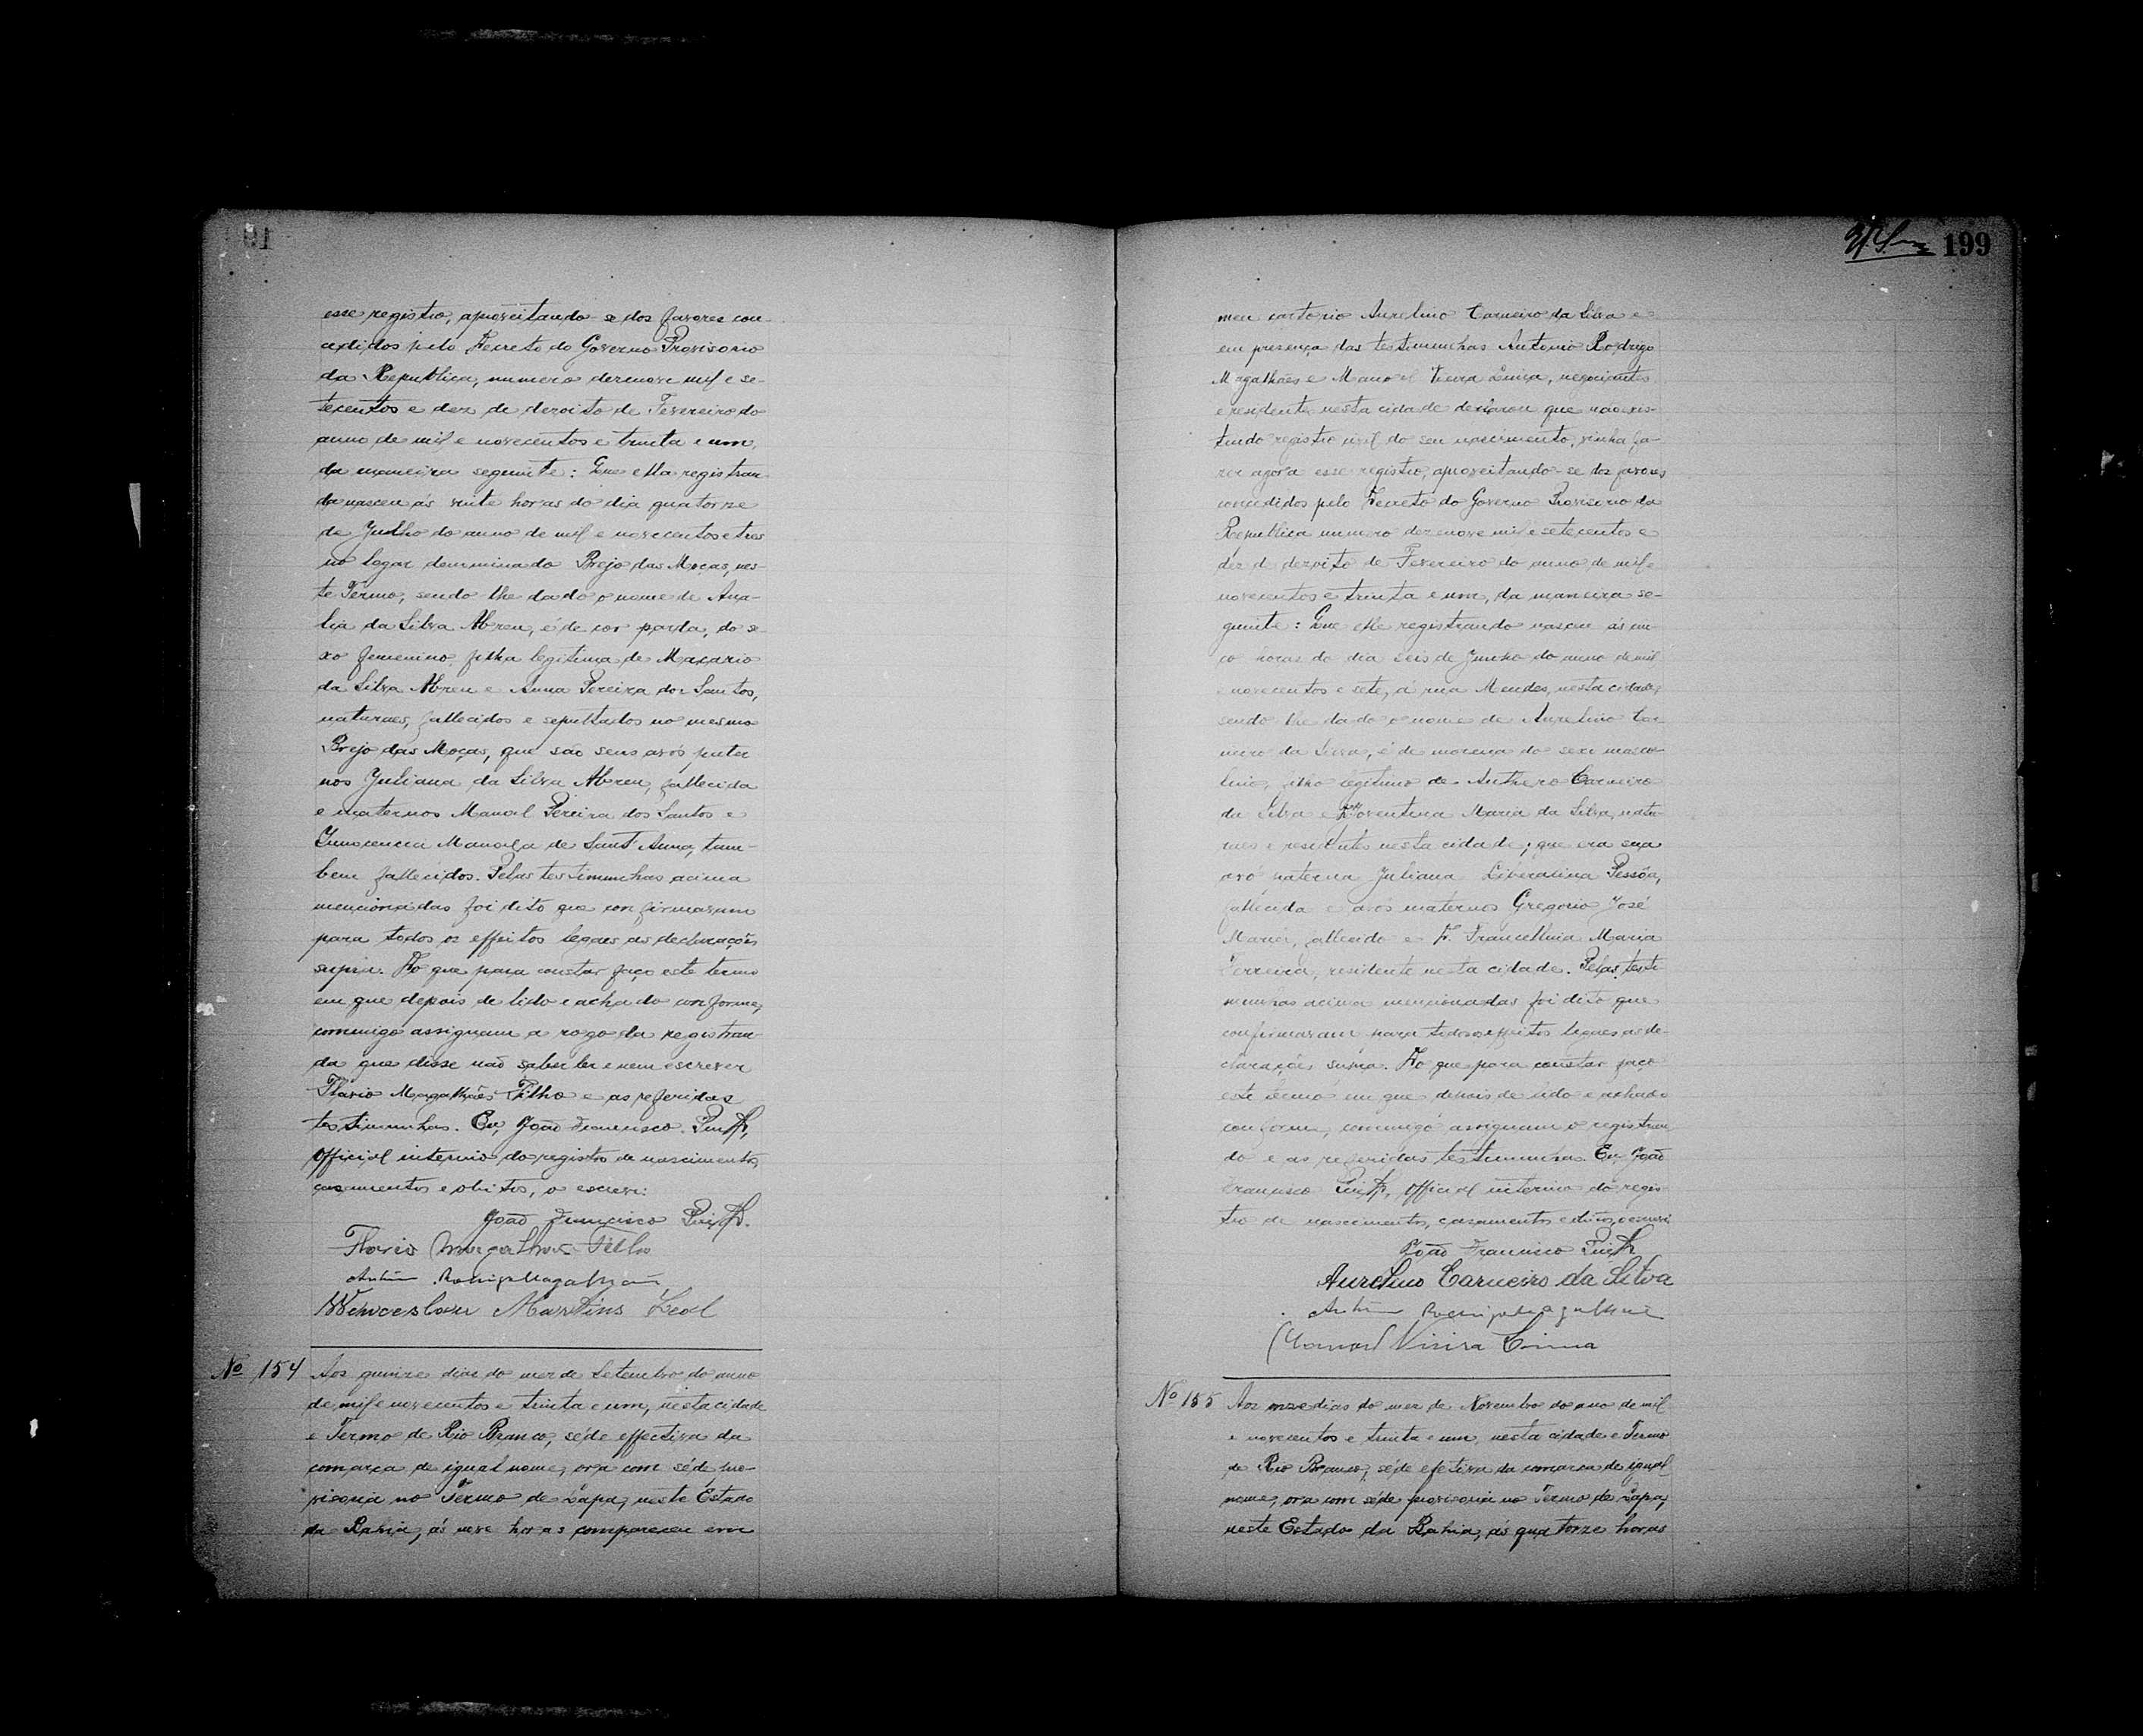 esse registro, aproveitando-se dos favores con-
cedidos pelo Decreto do Governo Provisorio
da Republica, numero dezenove mil e se-
tecentos e dez de dezoito de Fevereiro do
anno de mil e novecentos e trinta e um,
da maneira seguinte: Que ella registran-
da nasceu ás vinte horas do dia quatorze
de Julho do anno de mil e novecentos e tres
no logar denominado Brejo das Moças, nes-
te Termo, sendo lhe dado o nome de Ana-
lia da Silva Abreu, é de cor parda, do se-
xo femenino, filha legitima de Macario
da Silva Abreu e Anna Pereira dos Santos,
naturaes, fallecidos e sepultados no mesmo
Brejo das Moças, que são seus avós pater
nos Juliana da Silva Abreu, fallecida
e maternos Manoel Pereira dos Santos e
Innocencia Manoela de Sant'Anna, tam-
bem fallecidos. Pelas testimunhas acima
mencionadas foi dito que confirmavam
para todos os effeitos legaes as declarações
supra. Do que para constar faço este termo
em que depois de lido e achado conforme,
commigo assignam a rogo da registran-
da que disse não saber ler e nem escrever
Flavio Magalhães Filho e as referidas
testimunhas. Eu, João Francisco
official interino do registro de nascimentos
casamentos e obitos, o escrevi.
João Francisco
Flavio Magalhães Filho
Antonio Rodrigo Magalhães
Wenceslau Martins Leal
Nº 154 Aos quinze dias do mez de Setembro do anno
de mil e novecentos e trinta e um, nesta cidade
e Termo de Rio Branco, séde effectiva da
comarca de igual nome, ora com séde pro-
visoria no Termo de Lapa, neste Estado
da Bahia, ás nove horas compareceu em
199
meu cartorio Aurelino Carneiro da Silva e
em presença das testimunhas Antonio Rodrigo
Magalhães e Manoel Vieira, negociantes
e residentes nesta cidade declarou que não exis-
tindo registro civil do seu nascimento, vinha fa-
zer agora esse registro, aproveitando-se dos favores
concedidos pelo Decreto do Governo Provisorio da
Republica numero dezenove mil e setecentos e
dez de dezoito de Fevereiro do anno de mil e
novecentos e trinta e um, da maneira se-
guinte: Que elle registrando nasceu ás cin-
co horas do dia seis de Junho do anno de mil
e novecentos e sete, á rua Mendes, nesta cidade,
sendo lhe dado o nome de Aurelino Car
neiro da Silva, é de morena do sexo mascu-
lino, filho legitimo de Anthero Carneiro
da Silva e Florentina Maria da Silva, natu-
raes e residentes nesta cidade; que era sua
avó paterna Juliana Liberalina Pessôa,
fallecida e avós maternos Gregorio José
fallecido e D. Francellina Maria
Ferreira, residente nesta cidade. Pelas testi
munhas acima mencionadas foi dito que
confirmavam para todos os effeitos legaes as de-
clarações supra. Do que para constar faço
este termo em que depois de lido e achado
conforme, commigo assignam o registran
do e as referidas testimunhas. Eu, João
Francisco official interino do regis
tro de nascimentos, casamentos e obitos, o escrevi.
João Francisco
Aurelino Carneiro da Silva
Antonio Rodrigo Magalhães
Manoel Vieira
Nº 155 Aos onze dias do mez de Novembro do ano de mil
e novecentos e trinta e um, nesta cidade e Termo
de Rio Branco, séde efetiva da comarca de igual
nome, ora com séde provisoria no Termo de Lapa,
neste Estado da Bahia, ás quatorze horas